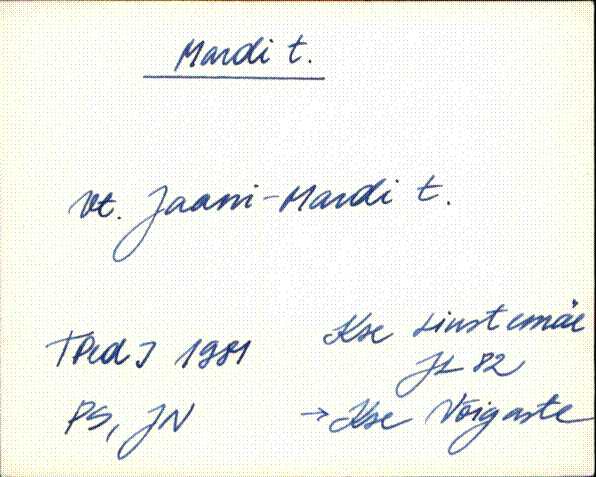 Mardi t.
Vt. Jaani-Mardi t.
TPedI 1981
PS, JN
Kse Linstemäe
JL 82
→ Kse Võigaste